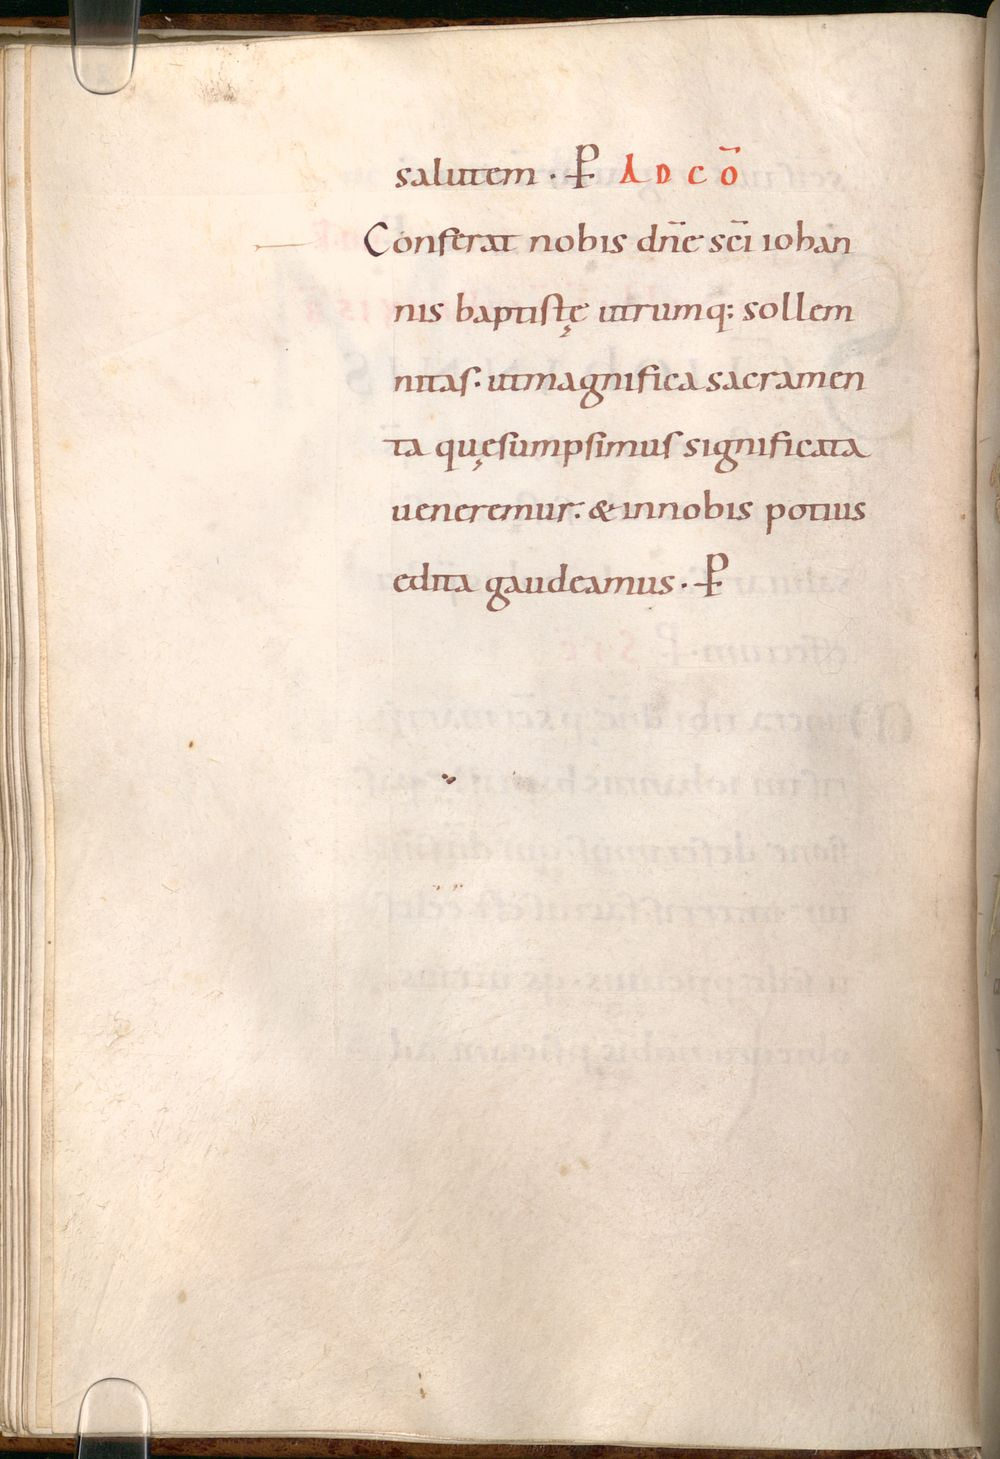 salutem · P̵ AD CŌ
Conferat nobis dn̄e sc̄i iohan
nis baptistę utrumq; sollem
nitas· ut magnifica sacramen
ta quę sumpsimus significata
ueneremur: & in nobis potius
edita gaudeamus · P̵